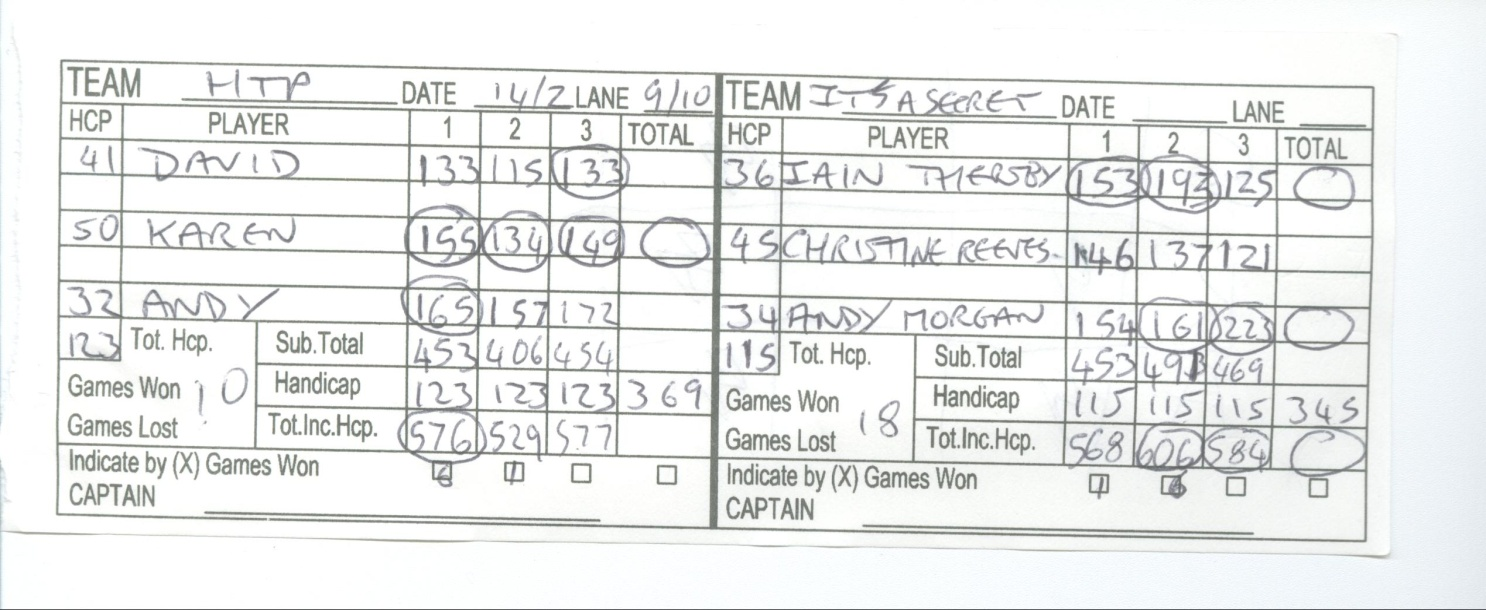 TEAM HTP DATE 14/2 LANE 9/10
HCP PLAYER 1 2 3 TOTAL
41 DAVID 133 115 133
50 KAREN 155 134 149
32 ANDY 165 157 172
123 Tot. Hcp. Sub.Total 453 406 454
Games Won 10 Handicap 123 123 123 369
Games Lost Tot.Inc.Hcp. 576 529 577
Indicate by (X) Games Won 6 1
CAPTAIN
TEAM ITS A SECRET DATE LANE
HCP PLAYER 1 2 3 TOTAL
36 IAIN THERSBY 153 193 125
45 CHRISTINE REEVES 146 137 121
34 ANDY MORGAN 154 161 223
115 Tot. Hcp. Sub.Total 453 491 469
Games Won 18 Handicap 115 115 115 345
Games Lost Tot.Inc.Hcp. 568 606 584
Indicate by (X) Games Won 1 6
CAPTAIN